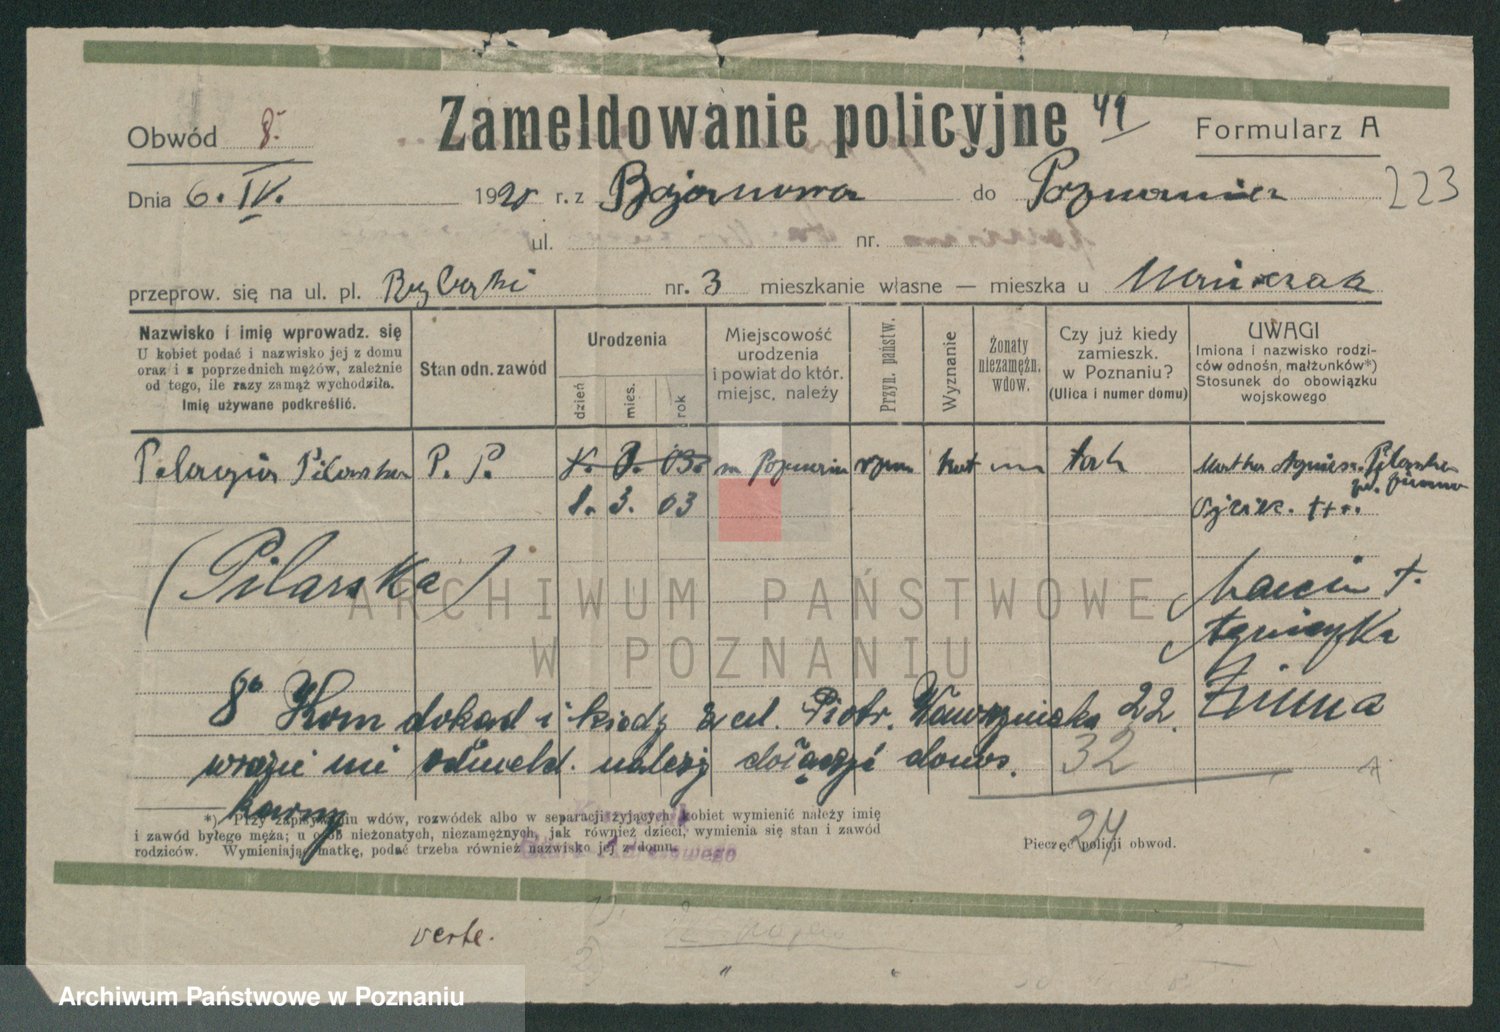 Zameldowanie policyjne 49
Obwód 8. Formularz A
Dnia 6. IV. 1920 r. z Bojanowa do Poznania 223
ul. nr.
przeprow. się na ul. pl. nr. 3 mieszkanie własne — mieszka u
Nazwisko i imię wprowadz. się
U kobiet podać i nazwisko jej z domu
oraz i z poprzednich mężów, zależnie
od tego, ile razy zamąż wychodziła.
Imię używane podkreślić.
Stan odn. zawód
Urodzenia
dzień mies. rok
Miejscowość
urodzenia
i powiat do któr.
miejsc. należy
Przyn. państw.
Wyznanie
Żonaty
niezamężn.
wdow.
Czy już kiedy
zamieszk.
w Poznaniu?
(Ulica i numer domu)
UWAGI
Imiona i nazwisko rodzi-
ców odnośn. małżunków*)
Stosunek do obowiązku
wojskowego
Pelagia Pilarska P. P. 03. m Poznania rzym kat tak Matka Agniesz. Pilarska
8. 3. 03
(Pilarska)
Marcin †.
Agnieszka
Zimna
8° Kom dokąd i kiedy Piotr. Wawrzyniaka 22.
wrazie nie odmeld. należy dołączyć donos. 32
karny
*) Przy zapisywaniu wdów, rozwódek albo w separacji żyjących kobiet wymienić należy imię
i zawód byłego męża; u osób nieżonatych, niezamężnych, jak również dzieci, wymienia się stan i zawód
rodziców. Wymieniając matkę, podać trzeba również nazwisko jej z domu.
24
Pieczęć policji obwod.
verte.
ARCHIWUM PAŃSTWOWE
W POZNANIU
Archiwum Państwowe w Poznaniu